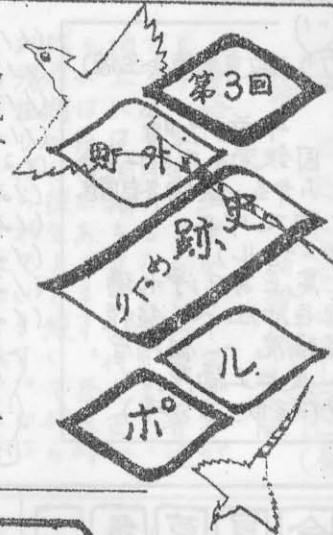 第3回
町外
史跡めぐり
ル
ポ